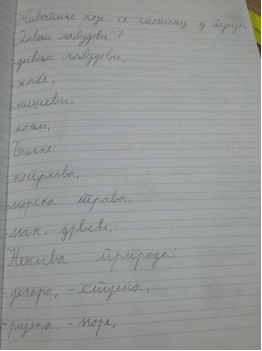 Животиње које се спомињу у бајци
Дивљи лабудови?
-дивљи лабудови,
-жабе,
-мишеви,
-коњи,
Биљке
-коприва,
-морска трава,
-мак, -дрвеће,
Нежива природа:
-језеро, -стијена,
-ријека, -море,